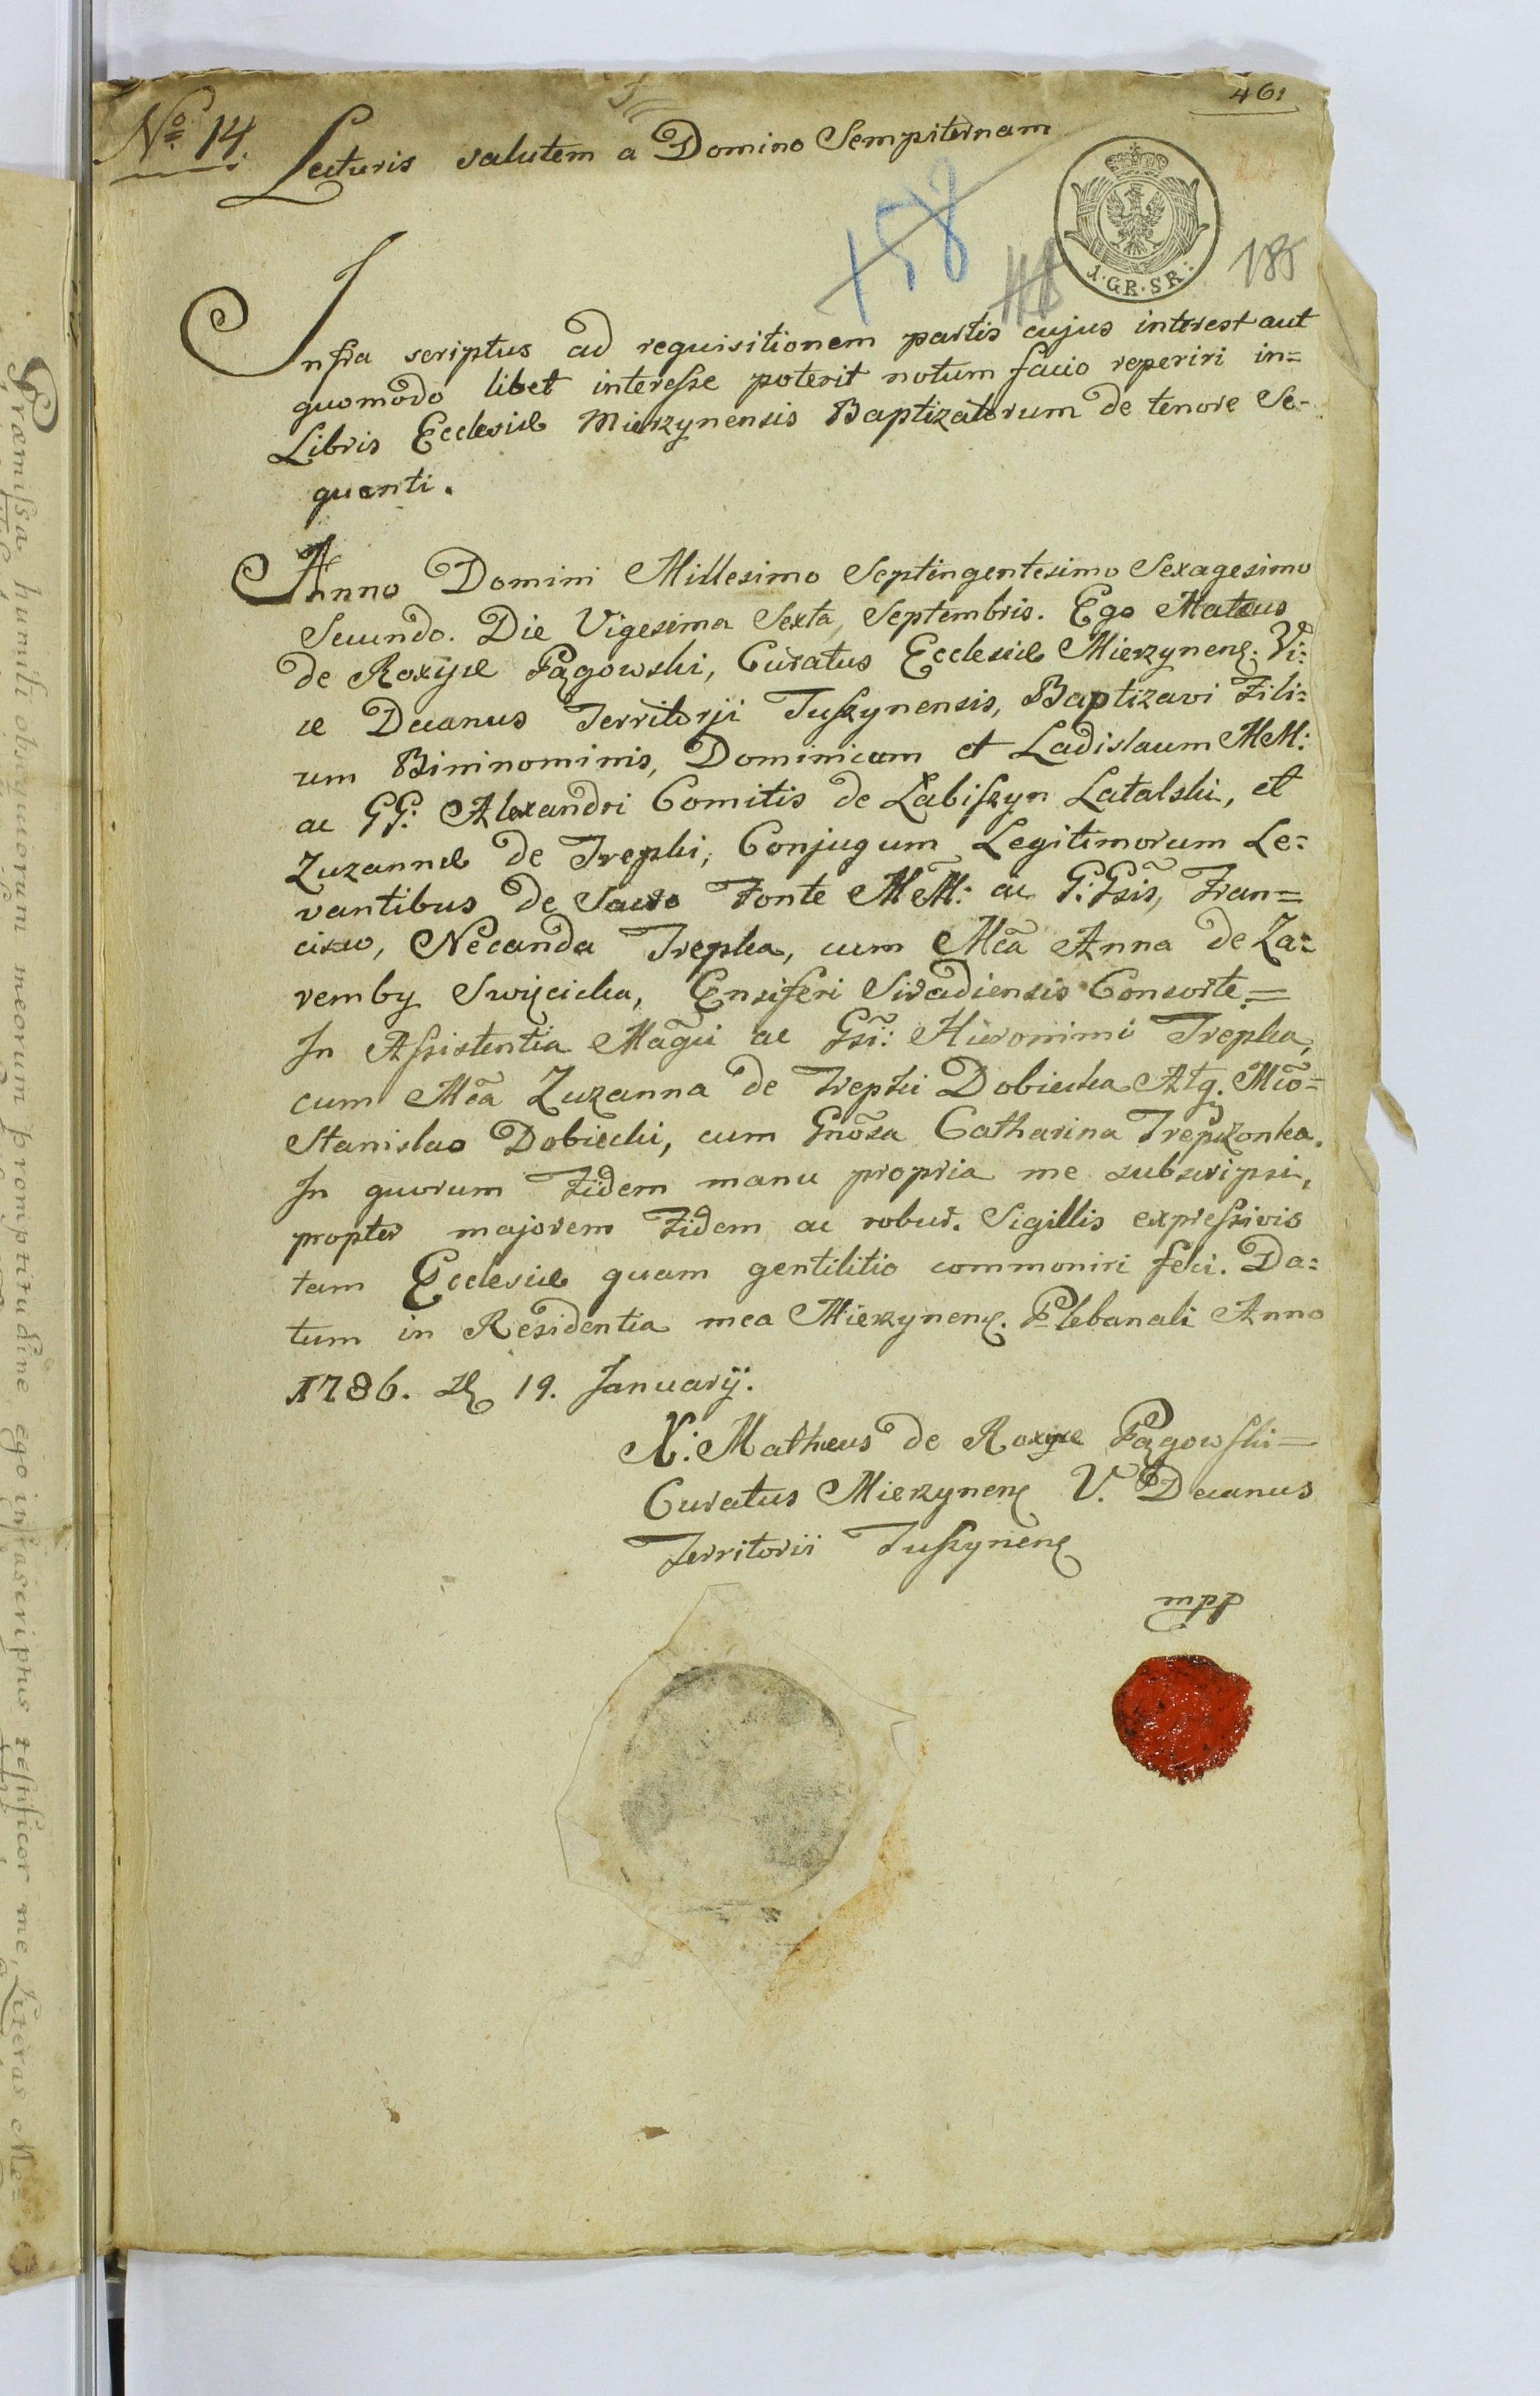 461
No 14.
Lecturis salutem a Domino Sempiternam
158
1·GR·SR:
185
Infra scriptus ad requisitionem partis cujus interest aut
quomodo libet interesse poterit notum facio reperiri in=
Libris Ecclesiæ Mierzynensis Baptizatorum de tenore Se-
quenti.
Anno Domini Millesimo Septingentesimo Sexagesimo
Secundo. Die Vigesima Sexta, Septembris. Ego Mateus
de Roxyce Pągowski, Curatus Ecclesiæ Mierzynens. Vi:
ce Decanus Territorji Tuszynensis, Baptizavi Fili=
um Bininominis, Dominicum et Ladislaum MM:
ac GG: Alexandri Comitis de Labiszyn Latalski, et
Zuzannæ de Trepki, Conjugum Legitimorum Le=
vantibus de Sacro Fonte MM: ac G:Gsis, Fran=
cisco, Necanda Trepka, cum Mcã Anna de Za=
remby Swięcicka, Ensiferi Siradiensis Consorte=
In Assistentia Magci ac Gsi: Hieronimi Trepka,
cum Mcã Zuzanna de Trepki Dobiecka Atq. Mco=
Stanislao Dobiecki, cum Gnõsa Catharina Trepczonka.
In quorum Fidem manu propria me subscripsi,
propter majorem Fidem ac robur. Sigillis expressivis
tam Ecclesiæ quam gentilitio commoniri feci. Da=
tum in Residentia mea Mierzynens. Plebanali Anno
1786. D 19. Januarij.
X: Matheus de Roxyce Pągowski=
Curatus Mierzynens V. Decanus
Territorii Tuszynens
mpp
Præmissa humili obsequiorum meorum promptitudine, ego infrascriptus testificor me, Literas Me=